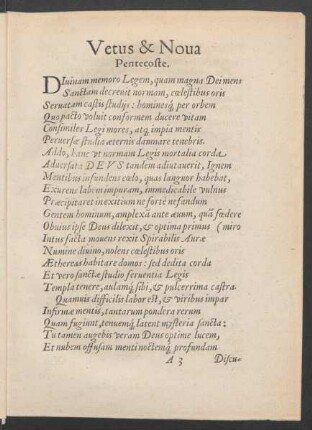 Vetus & Noua
Pentecoste.
DIuinam memoro Legem, quam magna Dei mens
Sanctam decreuit normam, cœlestibus oris
Seruatam castis studijs: hominesq́; per orbem
Quo pacto voluit conformem ducere vitam
Consimiles Legi mores, atq; impia mentis
Peruersæ studia æternis damnare tenebris.
Addo, hanc vt normam Legis mortalia corda
Aduersata DEVS tandem adiutauerit, Ignem
Mentibus infundens cœlo, quas languor habebat,
Exurens labem impuram, immedicabile vulnus
Præcipitaret in exitium ne forte nefandum
Gentem hominum, amplexã ante æuum, quã fœdere
Obuius ipse Deus dilexit, & optima primus (miro
Intus facta mouens rexit Spirabilis Auræ
Numine diuino, nolens cœlestibus oris
Æthereas habitare domos: sed dedita corda
Et vero sanctæ studio feruentia Legis
Templa tenere, aulamq́; sibi, & pulcerrima castra.
Quamuis difficilis labor est, & viribus impar
Infirmæ mentis, tantarum pondera rerum
Quam fugiunt, tenuemq́; latent mysteria sancta:
Tu tamen augebis veram Deus optime lucem,
Et nubem offusam menti noctemq́; profundam
A 3 Discu-